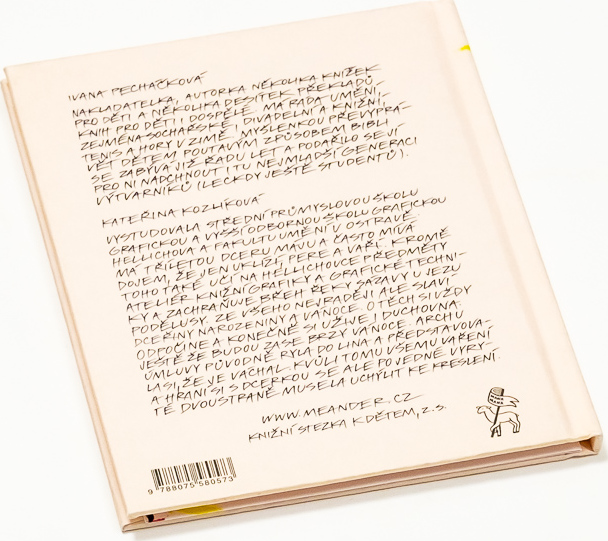 IVANA PECHÁČKOVÁ
NAKLADATELKA, AUTORKA NĚKOLIKA KNÍŽEK
PRO DĚTI A NĚKOLIKA DESÍTEK PŘEKLADŮ
KNIH PRO DĚTI I DOSPĚLÉ. MÁ RÁDA UMĚNÍ,
ZEJMÉNA SOCHAŘSKÉ I DIVADELNÍ A KNIŽNÍ,
TENIS A HORY V ZIMĚ. MYŠLENKOU PŘEVYPRÁ-
VĚT DĚTEM POUTAVÝM ZPŮSOBEM BIBLI
SE ZABÝVÁ JIŽ ŘADU LET A PODAŘILO SE JÍ
PRO NI NADCHNOUT I TU NEJMLADŠÍ GENERACI
VÝTVARNÍKŮ (LECKDY JEŠTĚ STUDENTŮ).
KATEŘINA KOZLÍKOVÁ
VYSTUDOVALA STŘEDNÍ PRŮMYSLOVOU ŠKOLU
GRAFICKOU A VYŠŠÍ ODBORNOU ŠKOLU GRAFICKOU
HELLICHOVA A FAKULTU UMĚNÍ V OSTRAVĚ.
MÁ TŘÍLETOU DCERU MÁJU A ČASTO MÍVÁ
DOJEM, ŽE JEN UKLÍZÍ, PERE A VAŘÍ. KROMĚ
TOHO TAKÉ UČÍ NA HELLICHOVCE PŘEDMĚTY
ATELIÉR KNIŽNÍ GRAFIKY A GRAFICKÉ TECHNI-
KY A ZACHRAŇUJE BŘEH ŘEKY SÁZAVY U JEZU
PODĚLUSY. ZE VŠEHO NEJRADĚJI ALE SLAVÍ
DCEŘINY NAROZENINY A VÁNOCE. O TĚCH SI VŽDY
ODPOČINE A KONEČNĚ SI UŽIJE I DUCHOVNA.
JEŠTĚ ŽE BUDOU ZASE BRZY VÁNOCE. ARCHU
ÚMLUVY PŮVODNĚ RYLA DO LINA A PŘEDSTAVOVA-
LA SI, ŽE JE VÁCHAL. KVŮLI TOMU VŠEMU VAŘENÍ
A HRANÍ SI S DCERKOU SE ALE PO JEDNÉ VYRY-
TÉ DVOUSTRANĚ MUSELA UCHÝLIT KE KRESLENÍ.
WWW.MEANDER.CZ
KNIŽNÍ STEZKA K DĚTEM, Z.S.
9 788075 580573